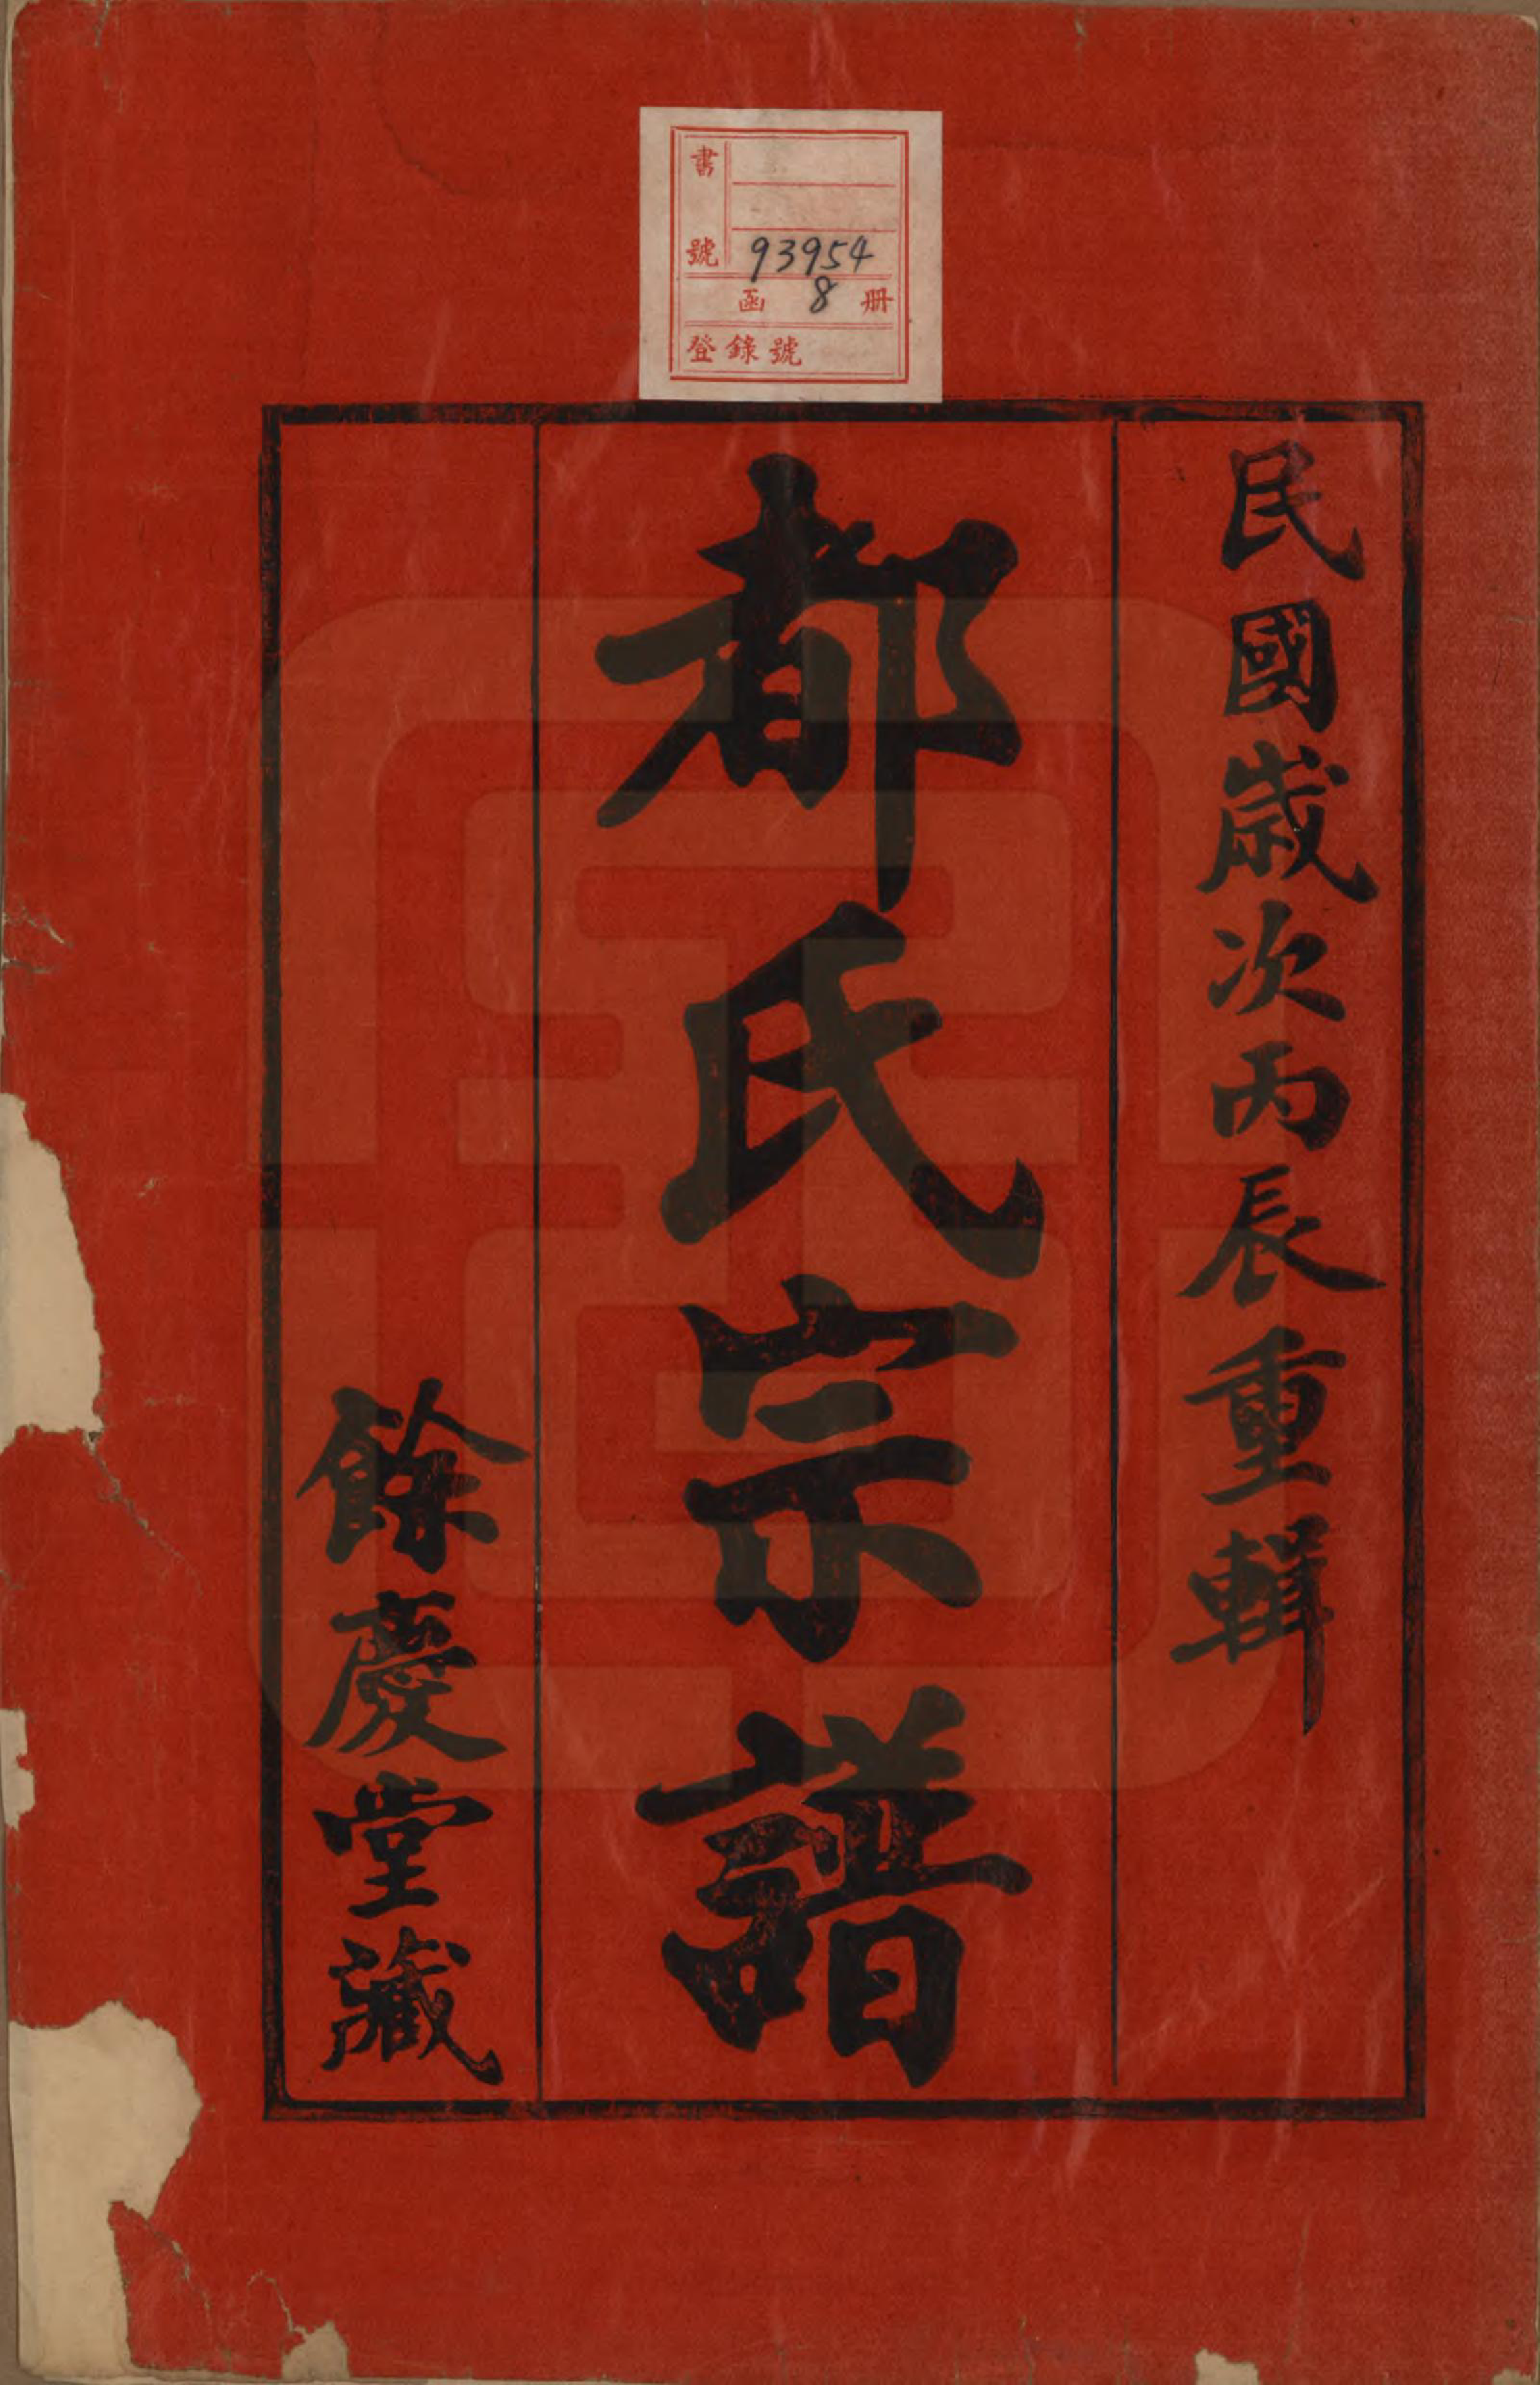 書號 93954
函 8 册
登錄號
民國歲次丙辰重輯
都氏宗譜
餘慶堂藏